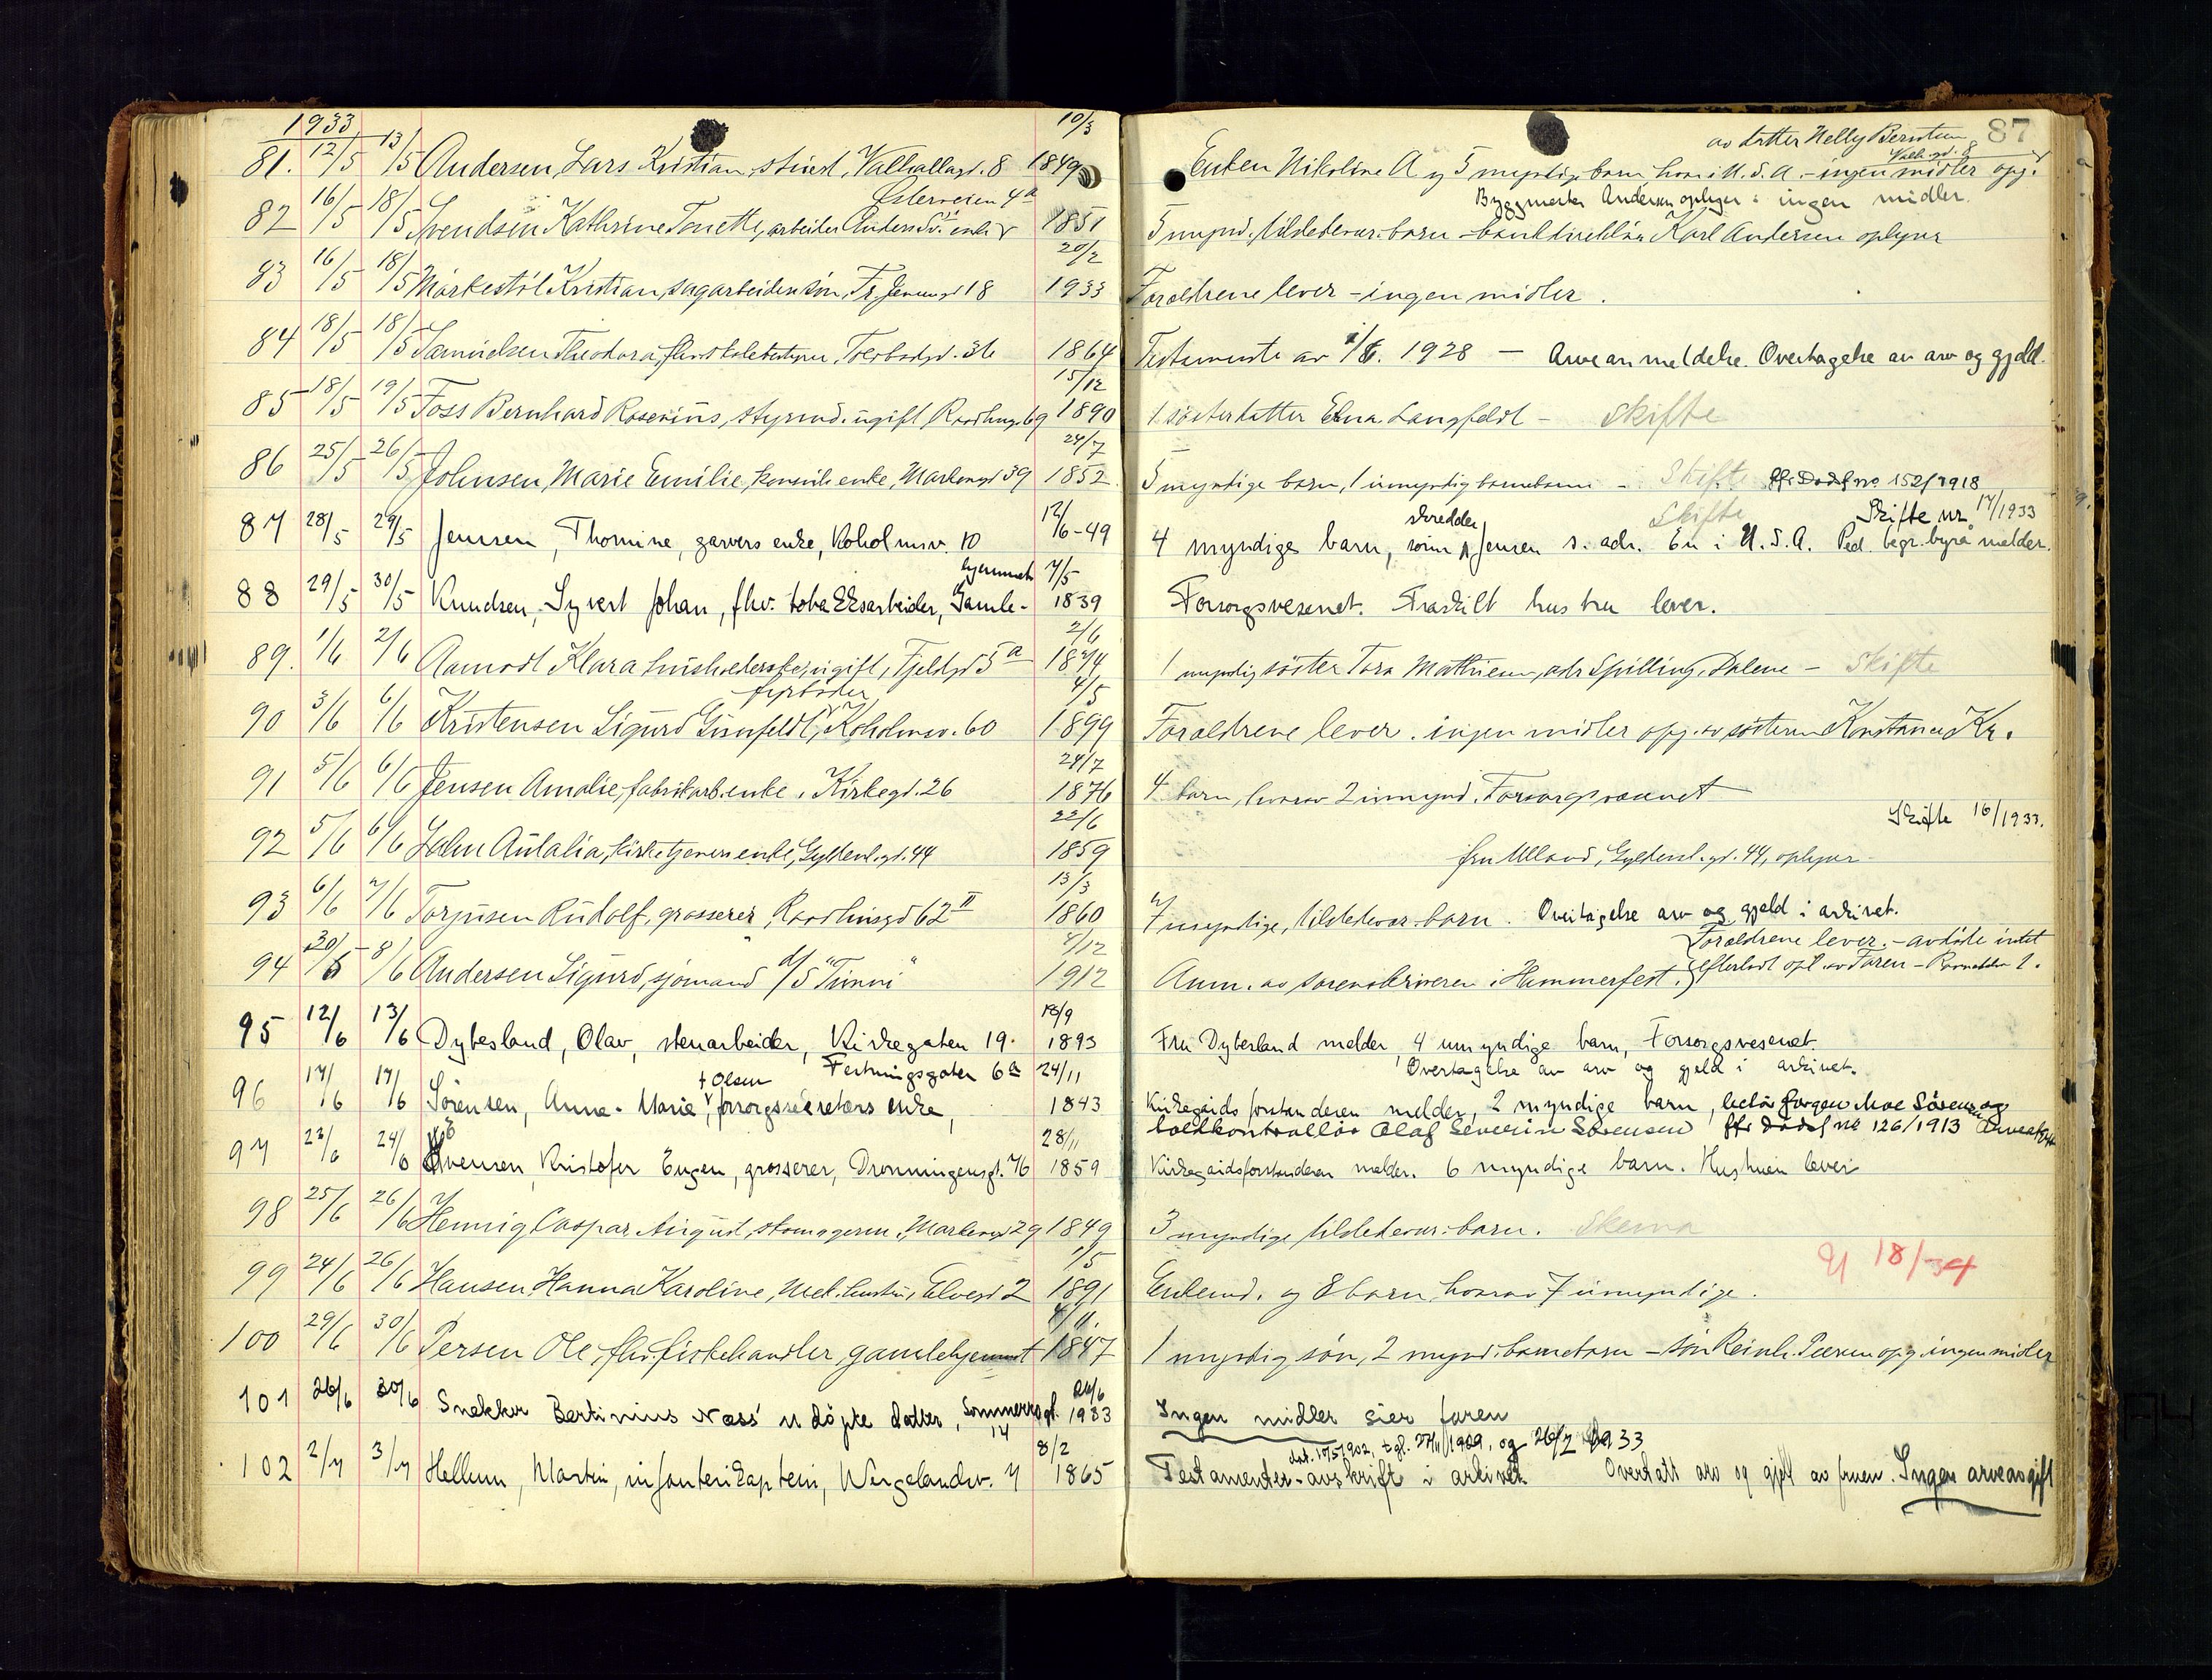 1933
87
81. 12/5 13/5 Andersen, Lars Kristian, stuert, Valhallagt. 8 10/3 1849 Enken Nikoline A og 5 myndige barn hvorav i U.S.A. - ingen midler opg. av datter Nelly Berntsen Valh.gt. 8
82 16/5 18/5 Svendsen Kathrine Tonette, arbeider Anders Sv. enke Østerveien 4a 1851 5 mynd. tilstedevær. barn - bankdirektør Karl Andersen oplyser
Byggmester Andersen oplyser: ingen midler.
83 16/5 18/5 Markestøl Kristian, sagarbeiders søn, Fr. Jensensgt 18 20/2 1933 Foreldrene lever - ingen midler.
84 18/5 18/5 Samuelsen Theodora, fhv. skolebestyrer, Tolbodgt. 36 1864 Testamente av 1/6. 1928 — Arveanmeldelse. Overtagelse av arv og gjeld.
85 18/5 19/5 Foss Bernhard Rosenius, styrmd. ugift, Raadhusgt. 69 15/12 1890 1 søsterdatter Edna Langfeldt - Skifte
86 25/5 26/5 Johnsen, Marie Emilie, konsuls enke, Markensgt 39 24/7 1852 5 myndige barn, 1 umyndig barnebarn - Skifte jfr. Dødsf no. 152/1918
87 28/5 29/5 Jensen, Thomine, garvers enke, Koholmsv. 10 12/6-49 4 myndige barn, skredder Jensen s. adr. En i U.S.A. Ped. begr.byrå melder. Skifte Skifte nr. 17/1933
88 29/5 30/5 Knudsen, Syvert Johan, fhv. tobakksarbeider, Gamle-hjemmet 7/5 1839 Forsorgsvesenet. Fraskilt hustru lever.
89. 1/6 2/6 Aamodt Klara husholderske, ugift, Fjeldgt 5a 2/6 1874 1 myndig søster Tora Mathiesen, adr Spilling, Dalene - Skifte
90 3/6 6/6 Kristensen Sigurd Gunfeldt, fyrbøder, Koholmsv. 60 4/5 1899 Foreldrene lever. ingen midler opg. av søsteren Konstance Kr.
91 5/6 6/6 Jensen Amalie, fabrikarb. enke, Kirkegt. 26 24/7 1876 4 barn, hvorav 2 umynd. Forsorgsvesenet
92 5/6 6/6 Zahn Aulalia, kirketjeners enke, Gyldenl.gt. 44 22/6 1859 fru Ulland, Gyldenl.gt. 44, oplyser Skifte 16/1933.
93 6/6 7/6 Torjusen Rudolf, grosserer, Raadhusgt 62 II 13/3 1860 7 myndige, tilstedevær. barn. Overtagelse arv og gjeld i arkivet.
94 20/5 8/6 Andersen Sigurd, sjømand d/s "Finni" 4/12 1912 Anm. av sorenskriveren i Hammerfest. Foreldrene lever. - avdøde intet
efterlatt opl. av Faren -
95 12/6 13/6 Dybesland, Olav, stenarbeider, Kirkegaten 19. 18/9 1893 Fru Dybesland melder, 4 umyndige barn, Forsorgsvesenet.
96 17/6 17/6 Sørensen, Anna-Marie f Olsen, forsorgssekretærs enke, Festningsgaten 6a 24/11 1843 Overtagelse av arv og gjeld i arkivet.
Kirkegårdsforstanderen melder, 2 myndige barn, lektor Jørgen Moe Sørensen og
tollkontrollør Olaf Severin Sørensen jfr dødsf no 126/1913
97 23/6 24/6 Evensen, Kristofer Eugen, grosserer, Dronningensgt. 76 28/11 1859 Kirkegårdsforstanderen melder. 6 myndige barn. Hustruen lever
98 25/6 26/6 Hennig Caspar August, skomagerm., Markensgt 29 1849 3 myndige tilstedevær. barn. Skema
99 24/6 26/6 Hansen Hanna Karoline, mek. hustru, Elvegt 2 1/5 1891 Enkemd. og 8 barn, hvorav 7 umyndige. 18/34
100 29/6 30/6 Persen Ole, fhv. fiskehandler, gamlehjemmet 4/11. 1847 1 myndig søn, 2 mynd. barnebarn - søn Reinh. Persen opg. ingen midler
101 26/6 30/6 Snekker Bertinius Næss' udøpte datter, Sommerrogt. 14 26/6 1933 Ingen midler sier faren
102 2/7 3/7 Hellum, Martin, infanterikaptein, Wergelandsv. 7 8/2 1865 Testamenter-avskrift i arkivet. dat. 10/5 1902, tgl. 27/11/1909, og 26/7 1933 Overtatt arv og gjeld av fruen. Ingen arveavgift